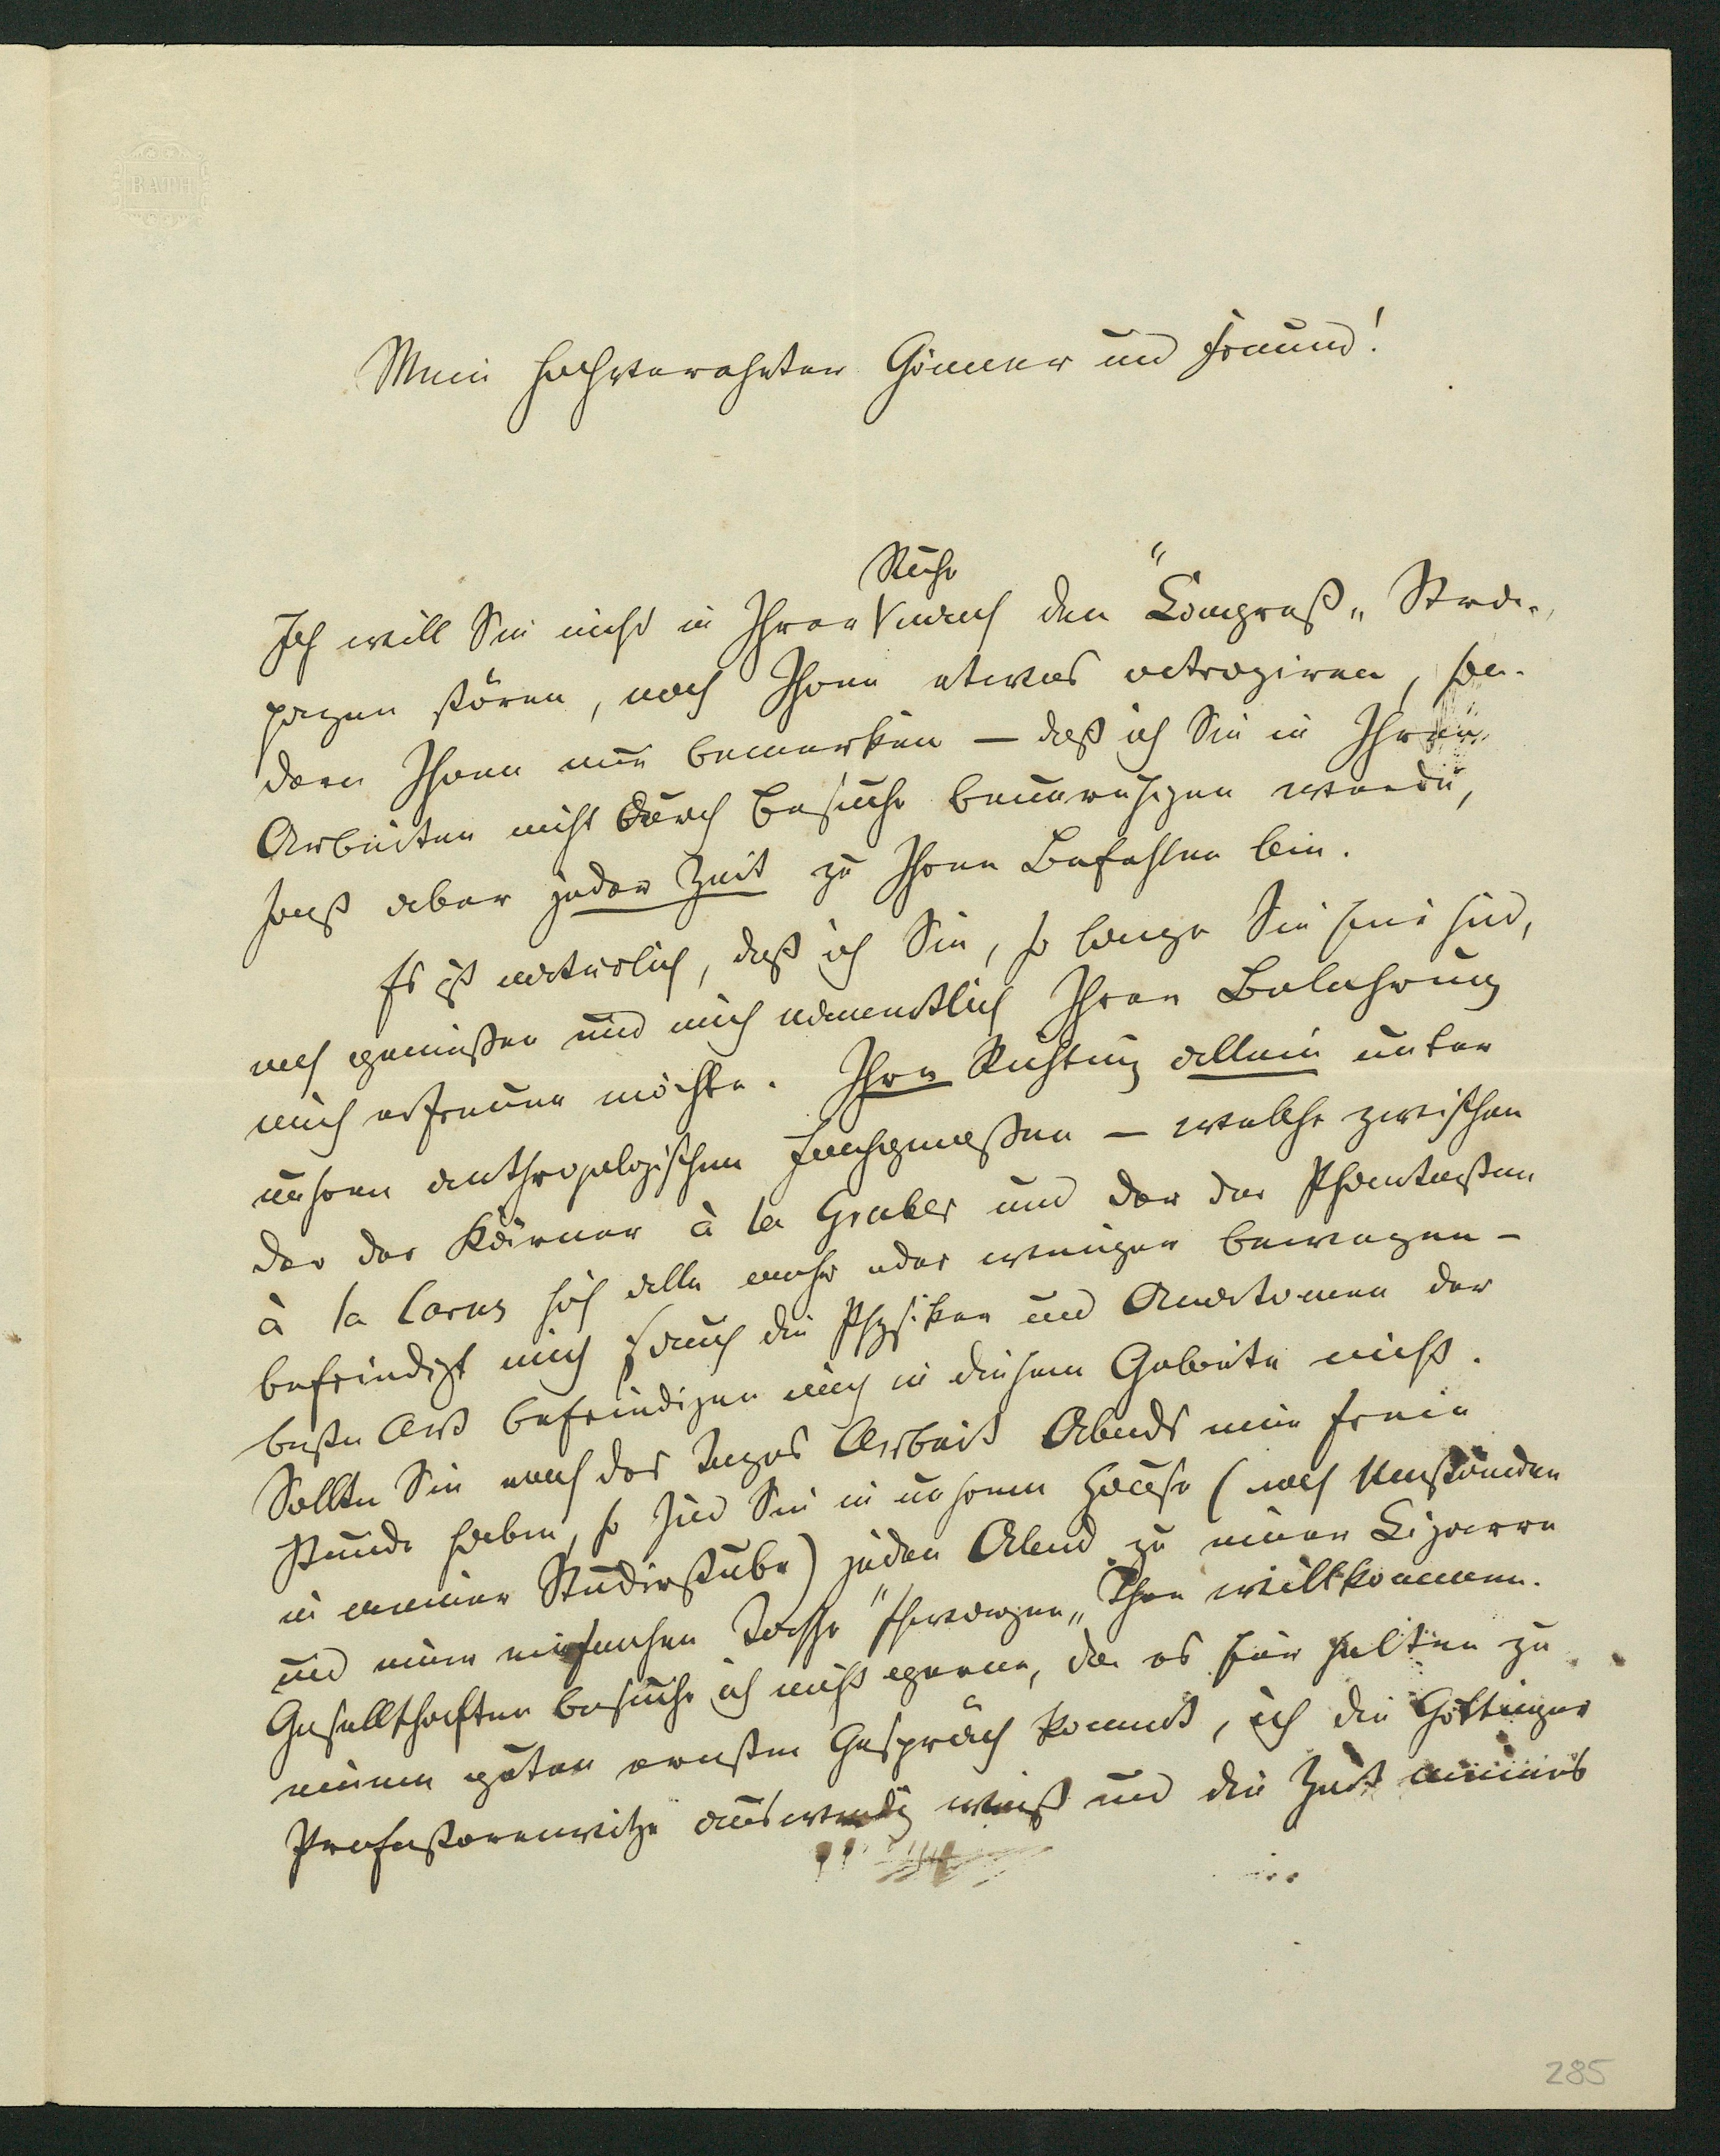 BATH
Mein hochverehrter Gönner und Freund!
Ruhe
Ich will Sie nicht in Ihrer nach den "Congreß" Stra-
pazen stören, noch Ihnen etwas octroyiren, son-
dern Ihnen nur bemerken — daß ich Sie in Ihren
Arbeiten nicht durch Besuche beunruhigen werde,
sonst aber jeder Zeit zu Ihren Befehlen bin.
Es ist natürlich, daß ich Sie, so lange Sie hier sind,
noch genießen und mich namentlich Ihrer Belehrung
mich erfreuen möchte. Ihre Richtung allein unter
unseren anthropologischen Fachgenossen — welche zwischen
der der Kärner à la Gruber und der der Phantasten
à la Carus sich alle mehr oder weniger bewegen —
befriedigt mich; auch die Physiker und Anatomen der
besten Art befriedigen mich in diesem Gebiete nicht.
Sollten Sie nach des Tages Arbeit Abends eine freie
Stunde haben, so sind Sie in unserem Hause (nach Umständen
in meiner Studirstube) jeden Abend zu einer Cigarre
und einer einfachen Tasse "schwarzen" Thee willkommen.
Gesellschaften besuche ich nicht gerne, da es hier selten zu
einem guten ernsten Gespräch kommt, ich die Göttinger
Professorenwitze auswendig weiß und die Zeit meines
285